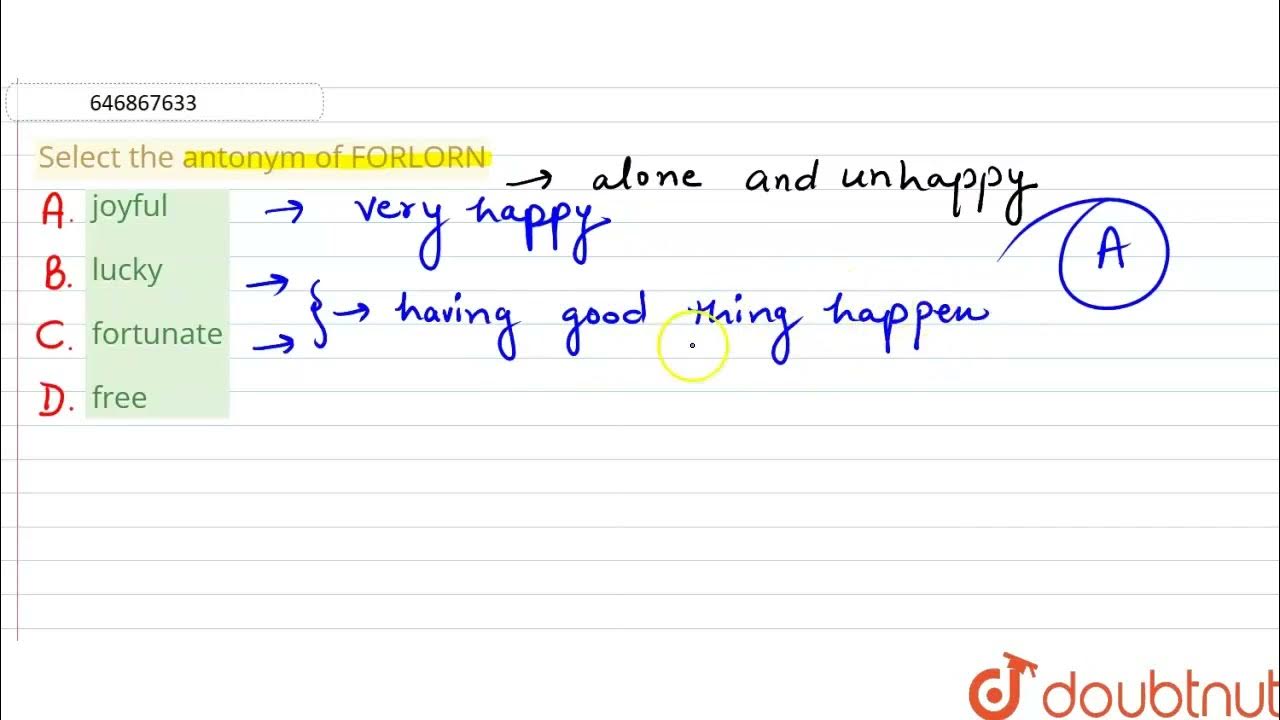 646867633
Select the antonym of FORLORN
→ alone and unhappy
A. joyful → very happy.
A
B. lucky →
} → having good thing happen
C. fortunate →
D. free
doubtnut